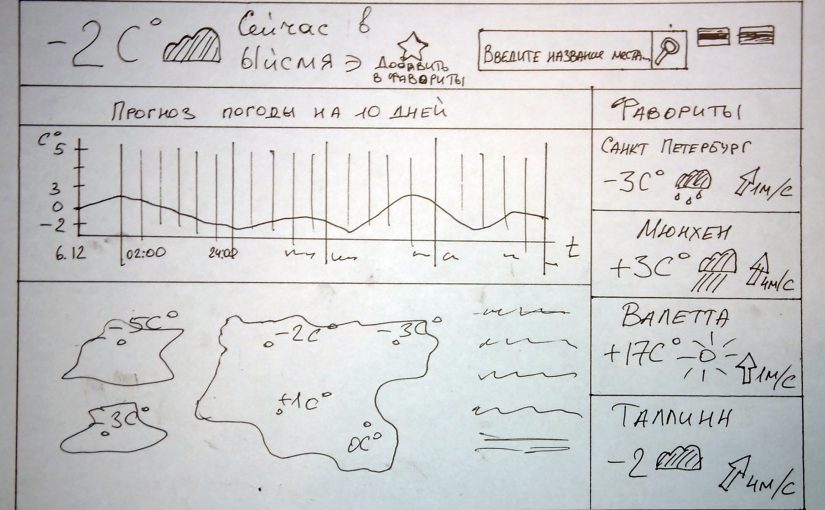 -2C°
Сейчас в
Ыйсмяэ
Добавить
в фавориты
Введите название места...
Прогноз погоды на 10 дней
Фавориты
C°
5
3
0
-2
6.12
02:00
24:00
t
Санкт Петербург
-3C°
1м/с
Мюнхен
+3C°
4м/с
Валетта
+17C°
1м/с
Таллинн
-2
4м/с
-5C°
-3C°
-2C°
-3C°
+1C°
0C°